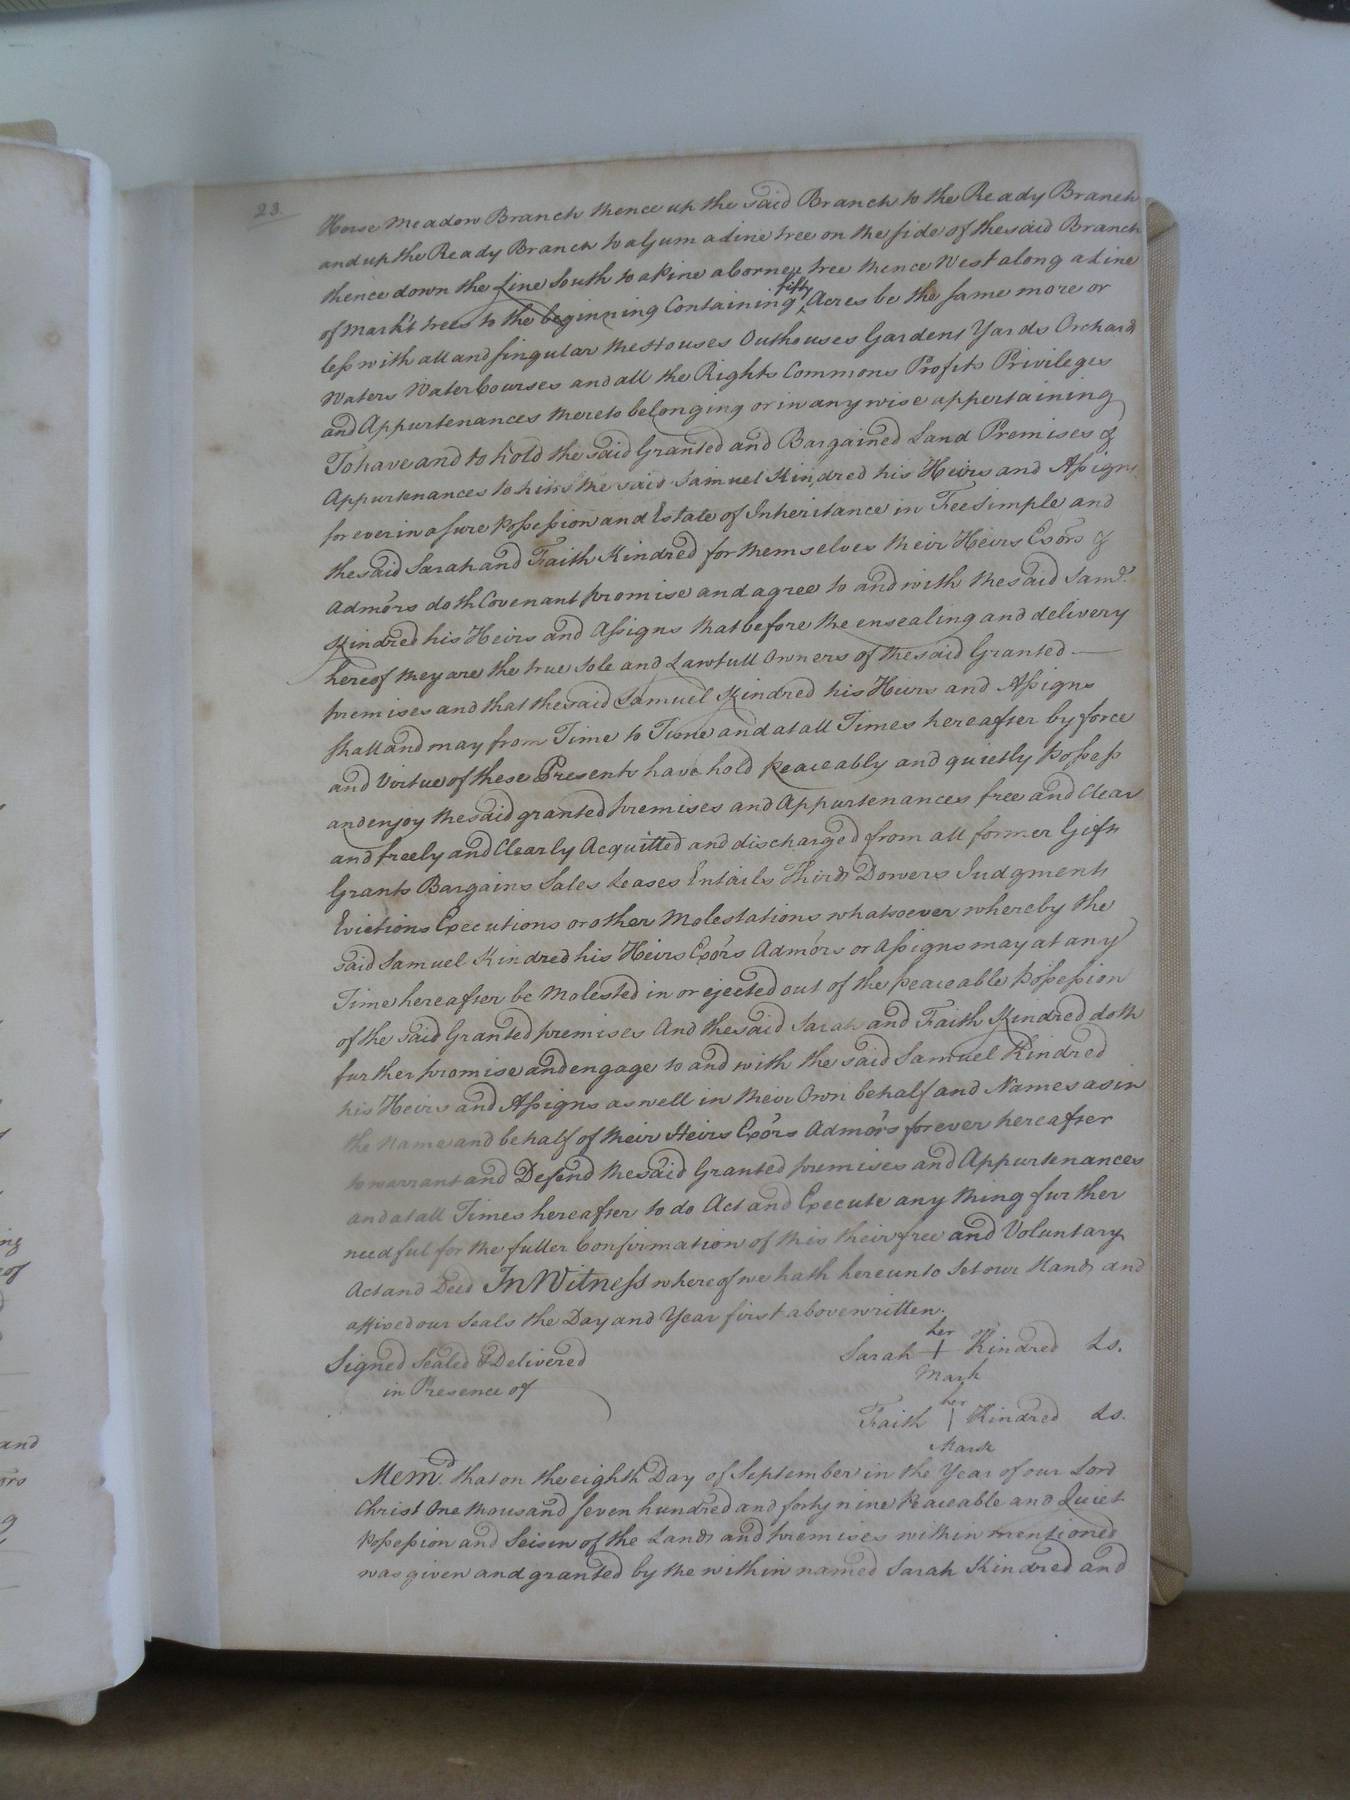 23.
Horse Meadow Branch thence up the said Branch to the Ready Branch
and up the Ready Branch to a Gum a dine tree on the side of the said Branch
thence down the Line South to a Pine a Corner tree thence West along a Line
of Mark't trees to the beginning Containing fifty Acres be the same more or
less with all and singular the Houses Outhouses Gardens Yards Orchard
Waters Water Courses and all the Rights Commons Profits Privileges
and Appurtenances thereto belonging or in any wise appertaining
To have and to hold the said Granted and Bargained Land Premises &
Appurtenances to him the said Samuel Kindred his Heirs and Assigns
for ever in a sure Possession and Estate of Inheritance in Fee simple and
the said Sarah and Faith Kindred for themselves their Heirs Exōrs &
Admōrs doth Covenant promise and agree to and with the said Sam.l
Kindred his Heirs and Assigns that before the ensealing and delivery
hereof they are the true Sole and Lawfull Owners of the said Granted
premises and that the said Samuel Kindred his Heirs and Assigns
shall and may from Time to Time and at all Times hereafter by force
and Virtue of these Presents have hold peaceably and quietly Possess
and enjoy the said granted premises and Appurtenances free and Clear
and freely and Clearly Acquitted and discharged from all former Gifts
Grants Bargains Sales Leases Entails Thirds Dowers Judgments
Evictions Executions or other Molestations whatsoever whereby the
said Samuel Kindred his Heirs Exōrs Admōrs or Assigns may at any
Time hereafter be Molested in or ejected out of the peaceable Possession
of the said Granted premises And the said Sarah and Faith Kindred doth
further promise and engage to and with the said Samuel Kindred
his Heirs and Assigns as well in their Own behalf and Names as in
the Name and behalf of their Heirs Exōrs Admōrs forever hereafter
to warrant and Defend the said Granted premises and Appurtenances
and at all Times hereafter to do Act and Execute any thing further
needful for the fuller Confirmation of this their free and Voluntary
Act and Deed In Witness whereof we hath hereunto set our Hands and
affixed our Seals the Day and Year first above written.
Signed Sealed & Delivered
in Presence of
her
Sarah + Kindred Ls.
Mark
her
Faith | Kindred Ls.
Mark
Mem.d that on the eighth Day of September in the Year of our Lord
Christ One thousand seven hundred and forty nine Peaceable and Quiet
Possession and Seisin of the Lands and premises within mentioned
was given and granted by the within named Sarah Kindred and